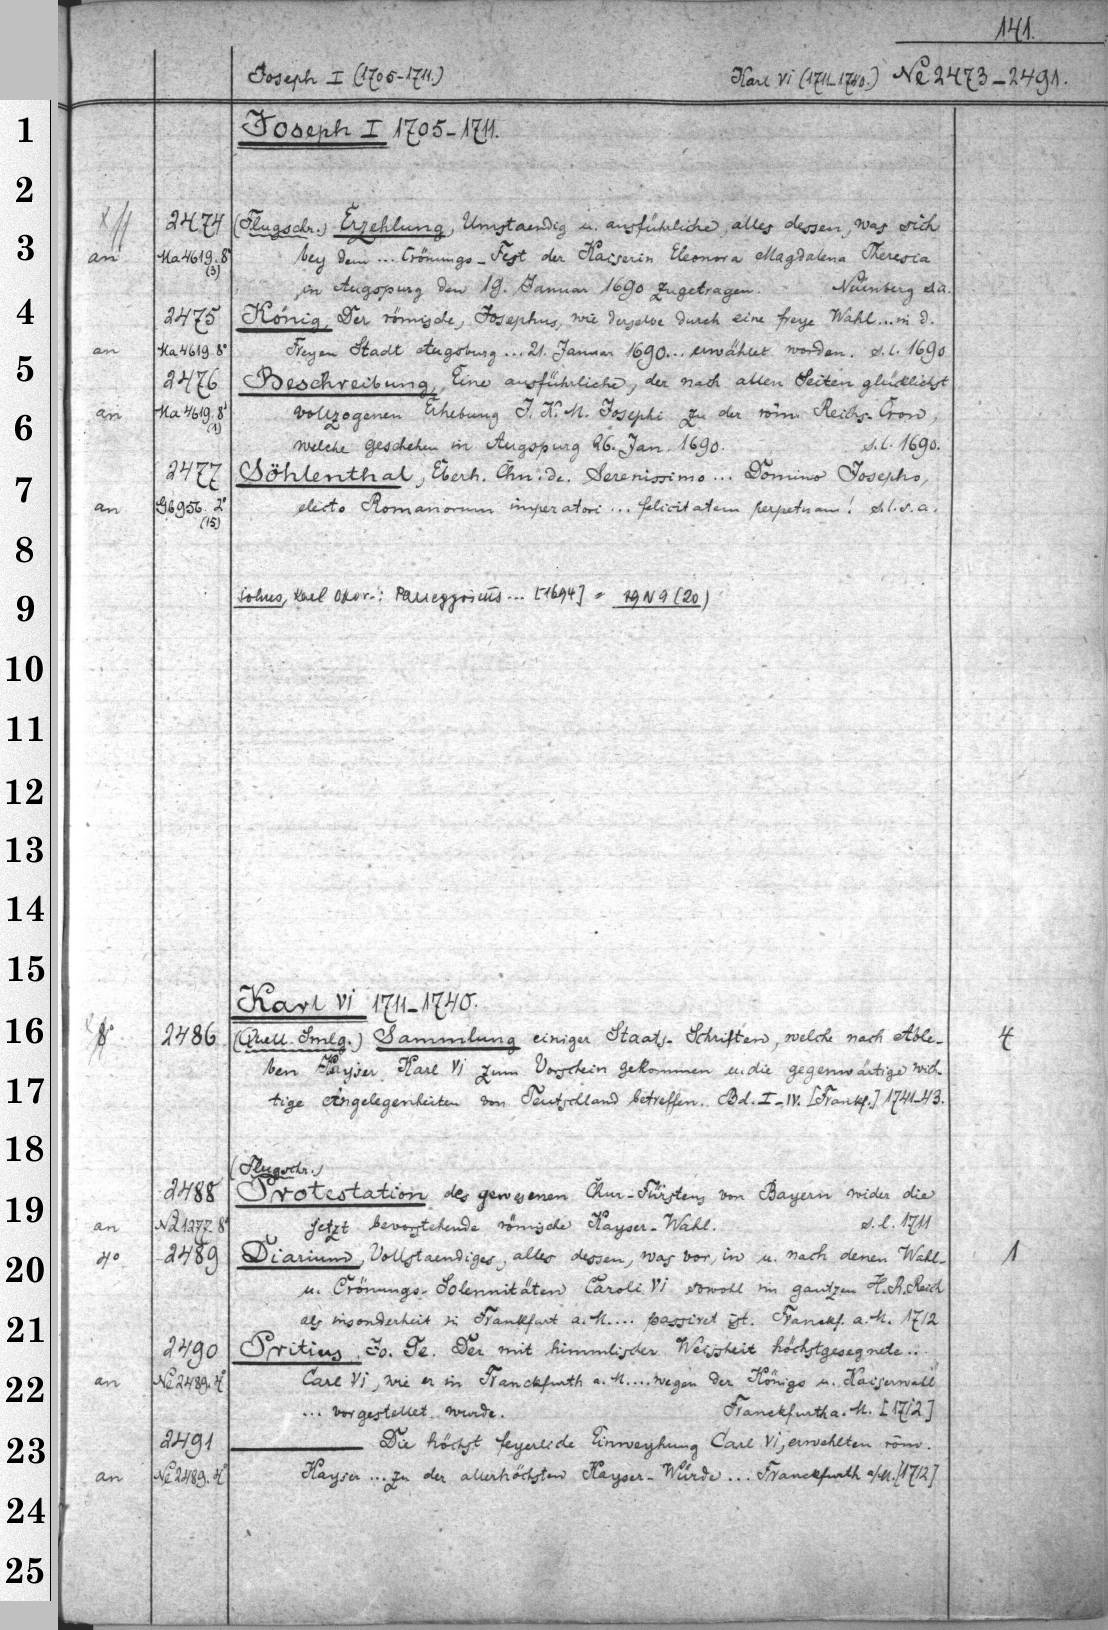 141.
Joseph I (1705-1711.) Karl VI (1711-1740.) Ne 2473-2491.
1 Joseph I 1705-1711.
2
2474 (Flugschr.) Erzehlung, Umstaendig u. ausführliche, alles dessen, was sich
3 an Ma 4619. 8° (3) bey dem ... Crönungs-Fest der Kaiserin Eleonora Magdalena Theresia
in Augspurg den 19. Januar 1690 zugetragen. Nürnberg s.a.
4 2475 König, Der römische, Josephus, wie derselbe durch eine freye Wahl ... in d.
an Ma 4619. 8° Freyen Stadt Augsburg ... 21. Januar 1690 ... erwählet worden. s.l. 1690
5 2476 Beschreibung, Eine ausführliche, der nach allen Seiten glücklichst
6 an Ma 4619. 8° (1) vollzogenen Erhebung J. K. M. Josephi zu der röm. Reichs-Cron,
welche geschehen in Augspurg 26. Jan. 1690. s.l. 1690.
7 2477 Söhlenthal, Eberh. Chn. de. Serenissimo ... Domino Josepho,
an G6956. 2° (15) electo Romanorum imperatori ... felicitatem perpetuam! s.l.s.a.
8
9 Karl [1694] = (20)
10
11
12
13
14
15
Karl VI 1711-1740.
16 8° 2486 (Quell. Smlg.) Sammlung einiger Staats-Schriften, welche nach Able- 4
ben Kayser Karl VI zum Vorschein gekommen u. die gegenwärtige wich-
17 tige Angelegenheiten von Teutschland betreffen. Bd. I-IV. [Frankf.] 1741-43.
18
(Flugschr.)
2488 Protestation des gewesenen Chur-Fürstens von Bayern wider die
19 an 8° jetzt bevorstehende römische Kayser-Wahl. s.l. 1711
20 4° 2489 Diarium, Vollstaendiges, alles dessen, was vor, in u. nach denen Wahl- 1
u. Crönungs-Solennitäten Caroli VI sowohl im gantzen H. R. Reich
21 als insonderheit in Frankfurt a. M. ... passiret ist. Franckf. a. M. 1712
2490 Pritius, Jo. Ge. Der mit himmlischer Weissheit höchstgesegnete ...
22 an Ne 2489. 4° Carl VI, wie er in Franckfurth a. M. ... wegen der Königs u. Kaiserwall
... vorgestellet wurde. Franckfurth a. M. [1712]
23 2491 Die höchst feyerliche Einweyhung Carl VI, erwehlten röm.
an Ne 2489. 4° Kayser ... zu der allerhöchsten Kayser-Würde ... Franckfurth a/M. [1712]
24
25